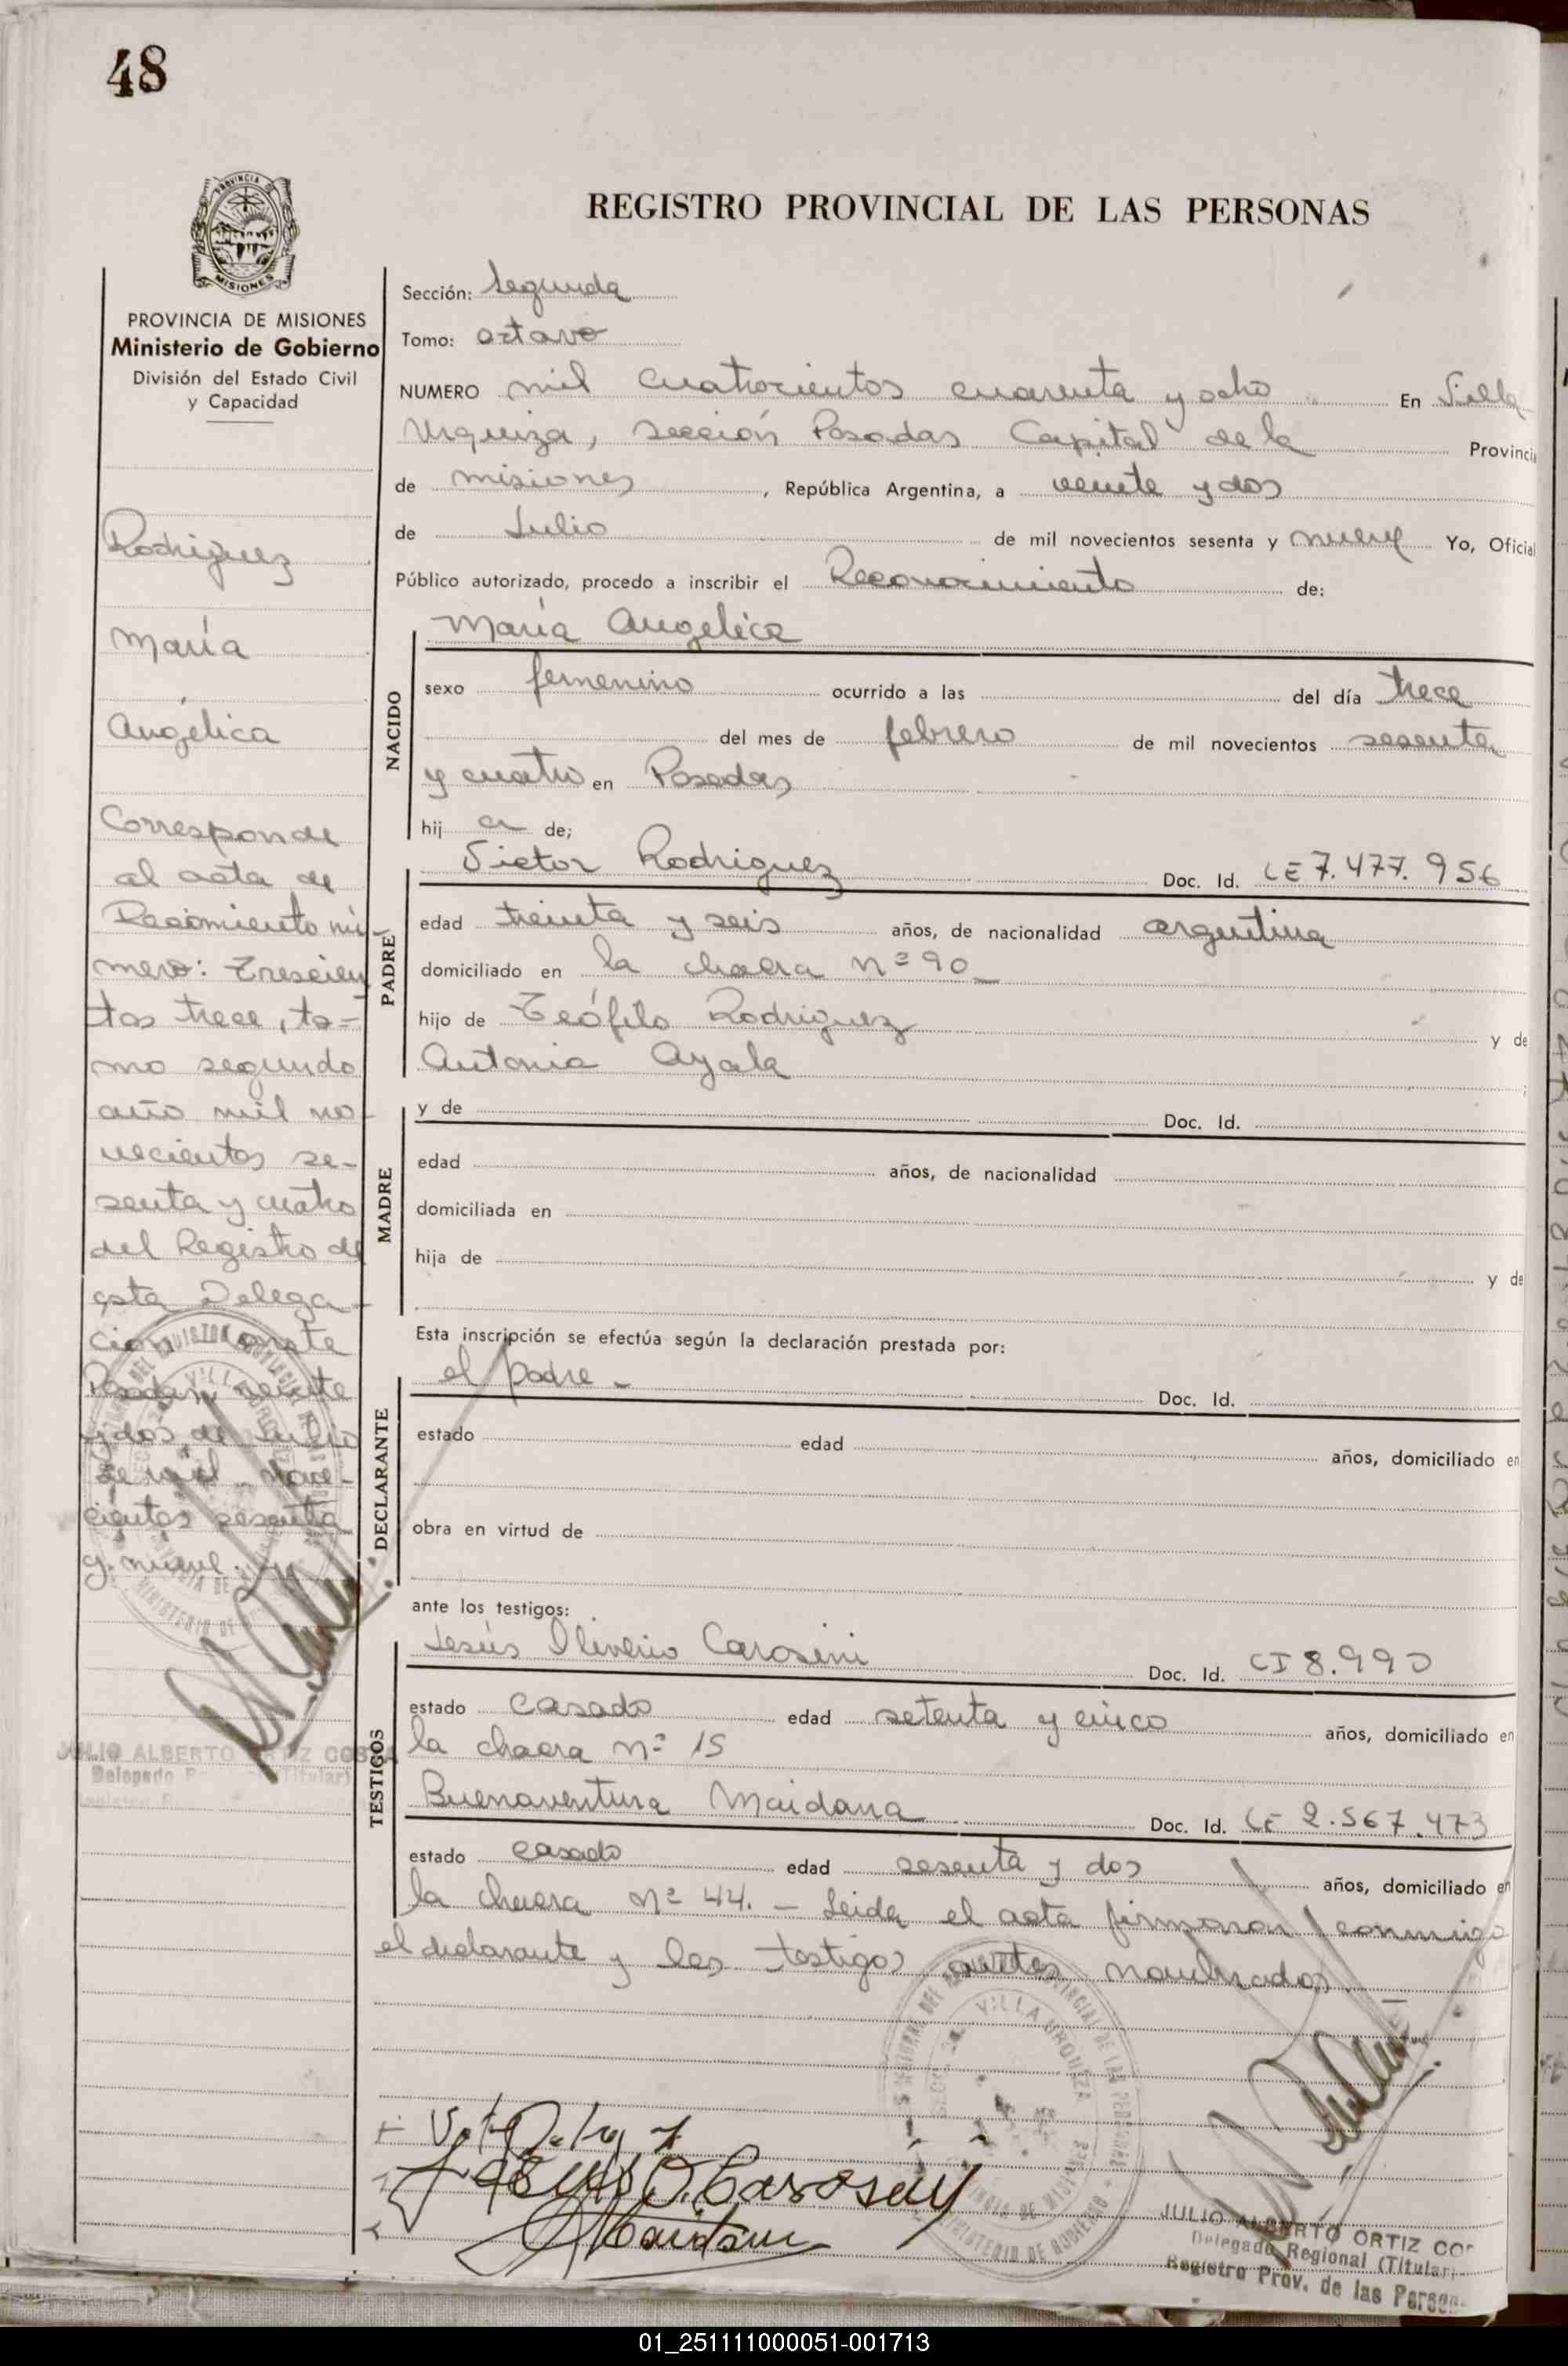 48
PROVINCIA DE
MISIONES
PROVINCIA DE MISIONES
Ministerio de Gobierno
División del Estado Civil
y Capacidad
Rodriguez
María
Angélica
Corresponde
al acta de
Nacimiento nú
mero: Trescien
tos trece, to=
mo segundo
año mil no-
vecientos se-
senta y cuatro
del Registro de
esta Delega-
ción. Conste
Posadas, veinte
y dos de Julio
de mil nove-
cientos sesenta
y nueve.
JULIO ALBERTO ORTIZ
Delegado (Titular)
REGISTRO PROVINCIAL DE LAS PERSONAS
Sección: Segunda
Tomo: octavo
NUMERO mil cuatrocientos cuarenta y ocho En Villa
Urquiza, sección Posadas Capital de la Provincia
de misiones, República Argentina, a veinte y dos
de Julio de mil novecientos sesenta y nueve Yo, Oficial
Público autorizado, procedo a inscribir el Reconocimiento de:
NACIDO
María Angelica
sexo femenino ocurrido a las del día trece
del mes de febrero de mil novecientos sesenta
y cuatro en Posadas
hij a de;
PADRE
Victor Rodriguez Doc. Id. LE 7.477.956
edad treinta y seis años, de nacionalidad argentina
domiciliado en la chacra nº 90
hijo de Teófilo Rodriguez y de
Antonia Ayala ;
MADRE
y de Doc. Id.
edad años, de nacionalidad
domiciliada en
hija de y de
Esta inscripción se efectúa según la declaración prestada por:
DECLARANTE
el padre - Doc. Id.
estado edad años, domiciliado en
obra en virtud de
ante los testigos:
TESTIGOS
Jesús Oliverio Carosini Doc. Id. CI 8.990
estado casado edad setenta y cinco años, domiciliado en
la chacra nº 15
Buenaventura Maidana Doc. Id. LE 2.567.473
estado casado edad sesenta y dos años, domiciliado en
la chacra nº 44. - Leida el acta firmaron conmigo
el declarante y los testigos antes nombrados.
VILLA URQUIZA
MINISTERIO DE GOBIERNO
Jesus O. Carosini
Maidana
JULIO ALBERTO ORTIZ CO
Delegado Regional (Titular)
Registro Prov. de las Person
01_251111000051-001713